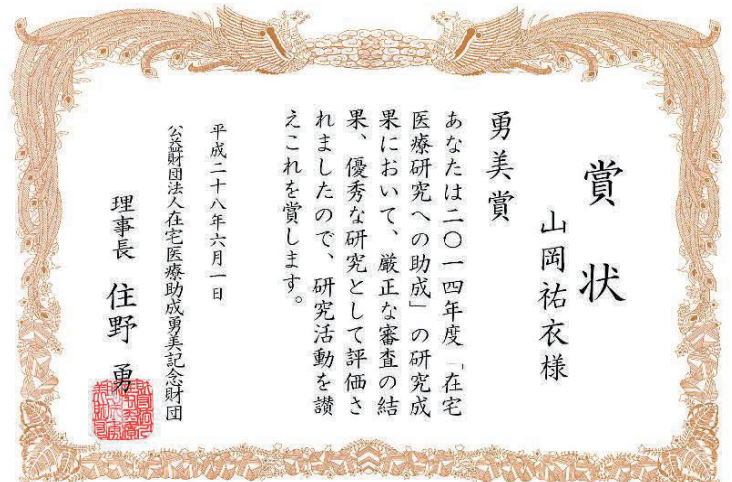 賞状
山岡祐衣様
勇美賞
あなたは二〇一四年度「在宅
医療研究への助成」の研究成
果において、厳正な審査の結
果、優秀な研究として評価さ
れましたので、研究活動を讃
えこれを賞します。
平成二十八年六月一日
公益財団法人在宅医療助成勇美記念財団
理事長 住野 勇